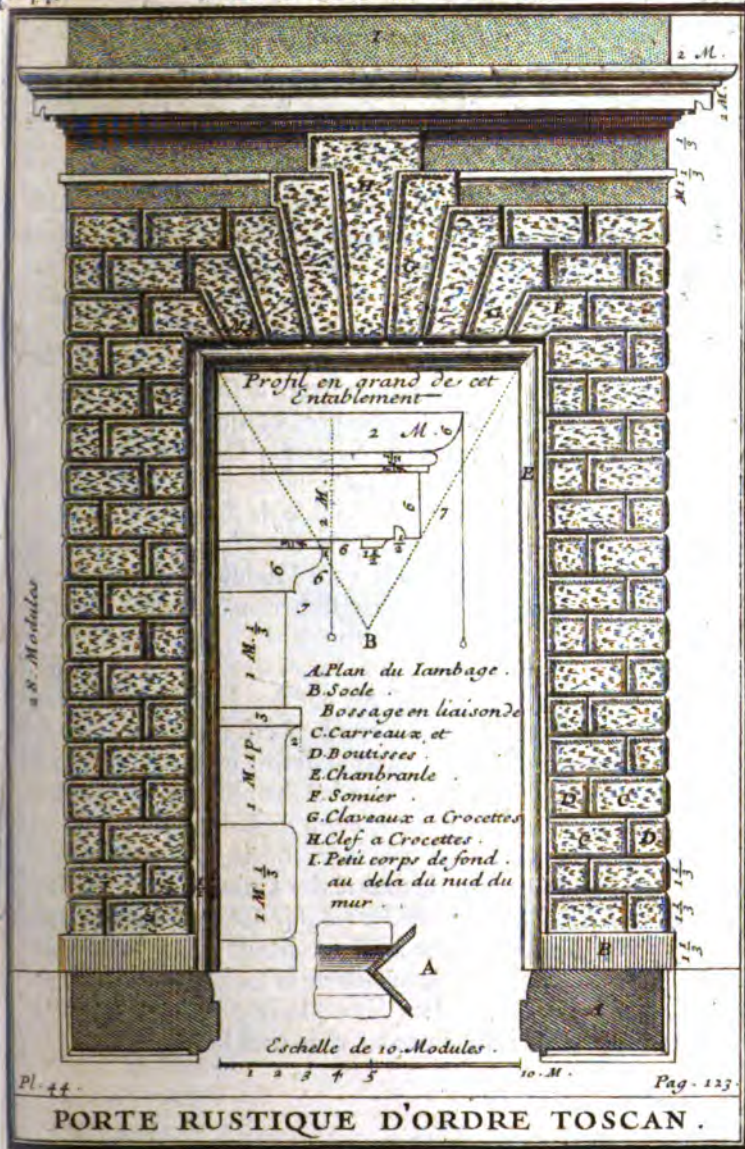 I
2 M.
2 M.
1/3
M 1 1/3
H
G
G
F
Profil en grand de cet
Entablement
2 M. 6
E
2 M
6
7
6
6
6
28. Modules
B
1 M. 1/3
A. Plan du Iambage.
B. Socle.
Bossage en liaison de
C. Carreaux et
D. Boutisses.
E. Chanbranle.
F. Somier.
G. Claveaux a Crocettes
H. Clef a Crocettes.
I. Petit corps de fond.
au dela du nud du
mur.
1 M. 1 p.
D C
C D
1 M. 1/3
1 1/3
1 1/3
1 1/3
B
A
A
Eschelle de 10. Modules.
1 2 3 4 5 10. M.
Pl. 44.
Pag. 123.
PORTE RUSTIQUE D'ORDRE TOSCAN.